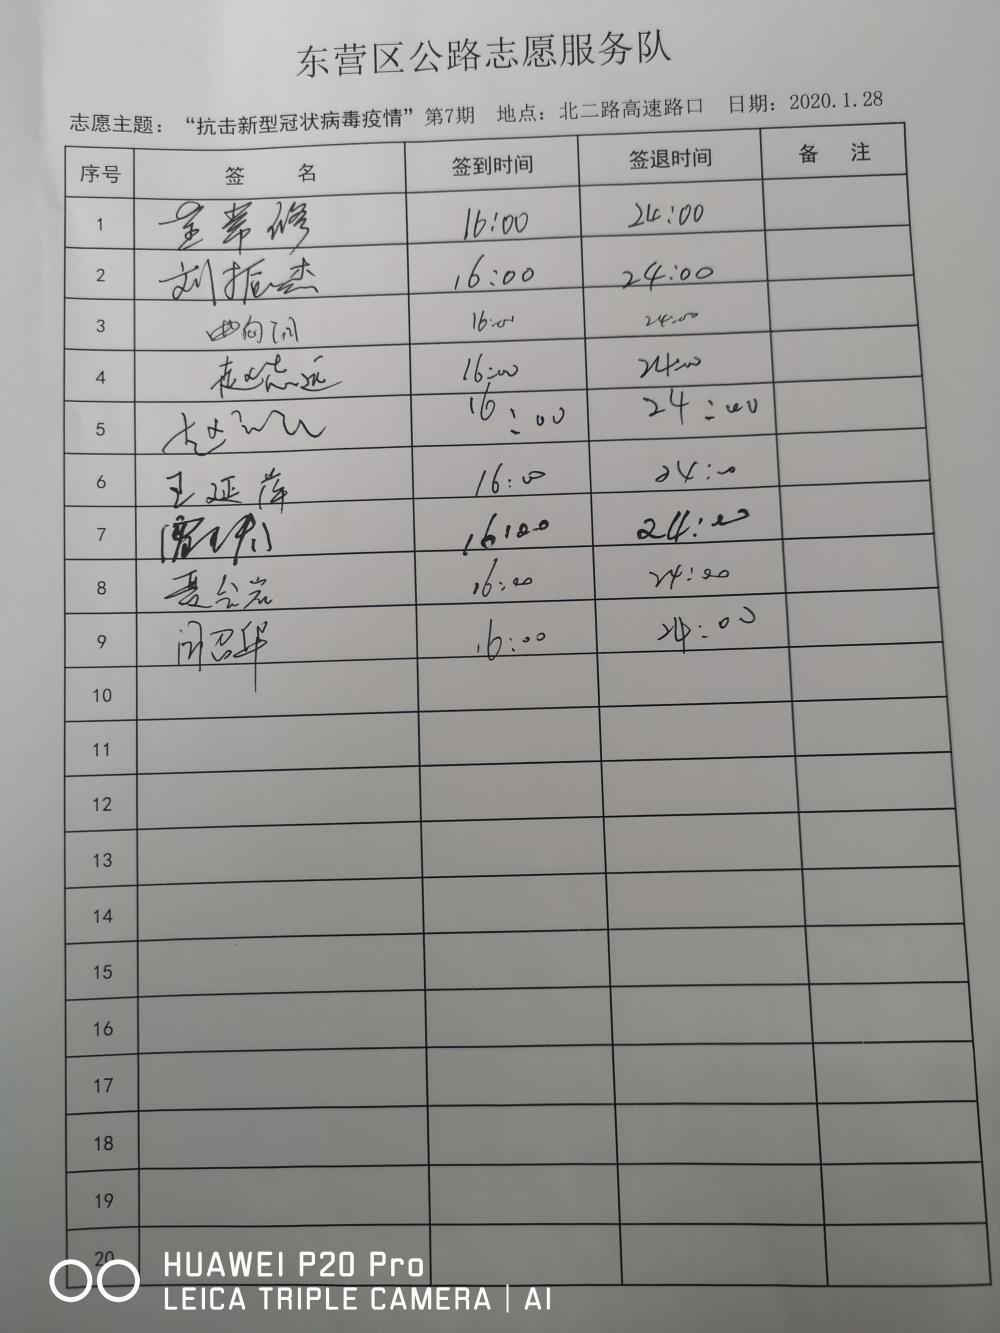 东营区公路志愿服务队
志愿主题：“抗击新型冠状病毒疫情”第7期 地点：北二路高速路口 日期：2020.1.28
序号 签 名 签到时间 签退时间 备 注
1 16:00 24:00
2 刘振杰 16:00 24:00
3 16:00 24:00
4 赵志远 16:00 24:00
5 16:00 24:00
6 王延萍 16:00 24:00
7 16:00 24:00
8 聂会岩 16:00 24:00
9 闫召华 16:00 24:00
10
11
12
13
14
15
16
17
18
19
20
HUAWEI P20 Pro
LEICA TRIPLE CAMERA | AI